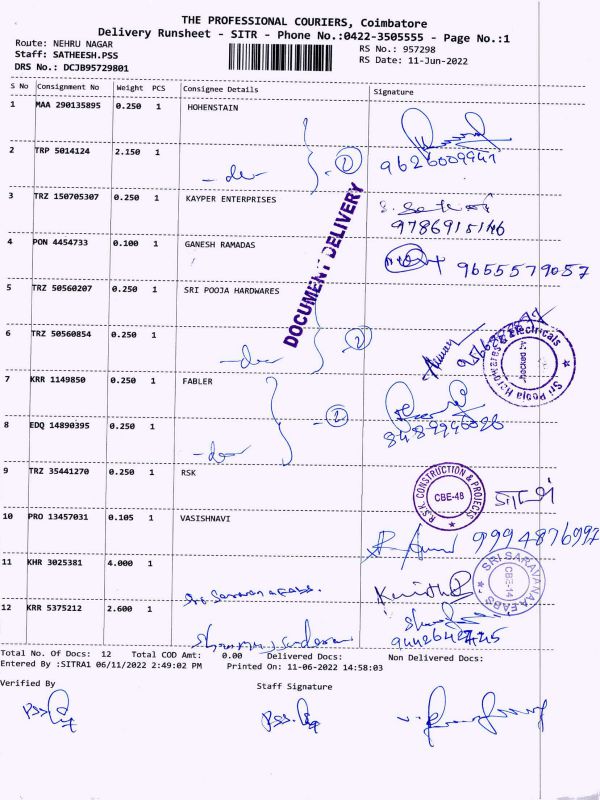 THE PROFESSIONAL COURIERS, Coimbatore
Delivery Runsheet - SITR - Phone No.:0422-3505555 - Page No.:1
Route: NEHRU NAGAR
Staff: SATHEESH.PSS
RS No.: 957298
DRS No.: DCJB95729801
RS Date: 11-Jun-2022
S No Consignment No Weight PCS Consignee Details Signature
1 MAA 290135895 0.250 1 HOHENSTAIN
2 TRP 5014124 2.150 1 -do- 2
9626009941
3 TRZ 150705307 0.250 1 KAYPER ENTERPRISES
9786915146
4 PON 4454733 0.100 1 GANESH RAMADAS 9655579057
DOCUMENT DELIVERY
5 TRZ 50560207 0.250 1 SRI POOJA HARDWARES
6 TRZ 50560854 0.250 1 -do- 2
Sri Pooja Hardwares & Electricals
7 KRR 1149850 0.250 1 FABLER 2
8 EDQ 14890395 0.250 1 -do-
9 TRZ 35441270 0.250 1 RSK
R.S.K. CONSTRUCTION & PROJECTS
CBE-48
10 PRO 13457031 0.105 1 VASISHNAVI
9994876997
11 KHR 3025381 4.000 1 Sri Saravana Fabs.
SRI SARAVANAA FABS
CBE-14
12 KRR 5375212 2.600 1
Total No. Of Docs: 12 Total COD Amt: 0.00 Delivered Docs: Non Delivered Docs:
Entered By :SITRA1 06/11/2022 2:49:02 PM Printed On: 11-06-2022 14:58:03
Verified By Staff Signature
PSS PSS.